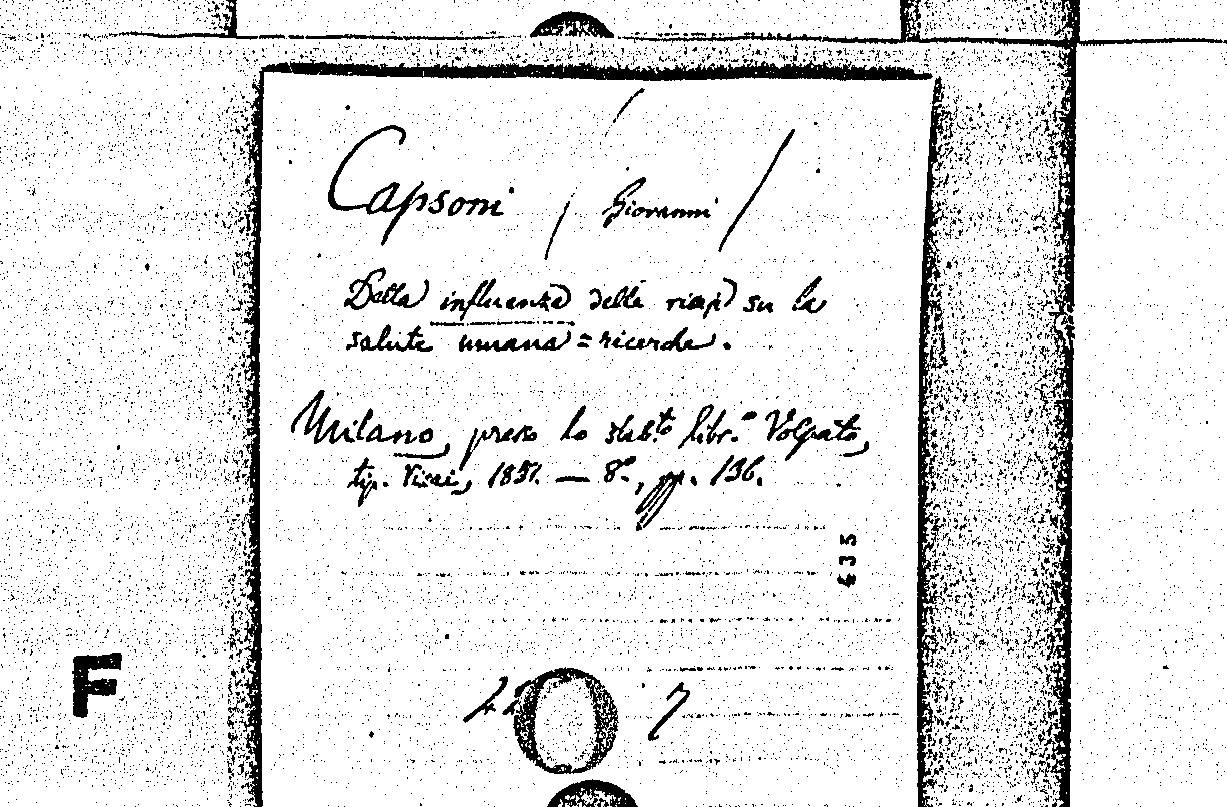 Capsoni / Giovanni /
Della influenza delle risaje su la
salute umana = ricerche.
Milano, presso lo stab.to libr.o Volpato,
tip. Visai, 1851. — 8°, pp. 136.
435
F
42 7